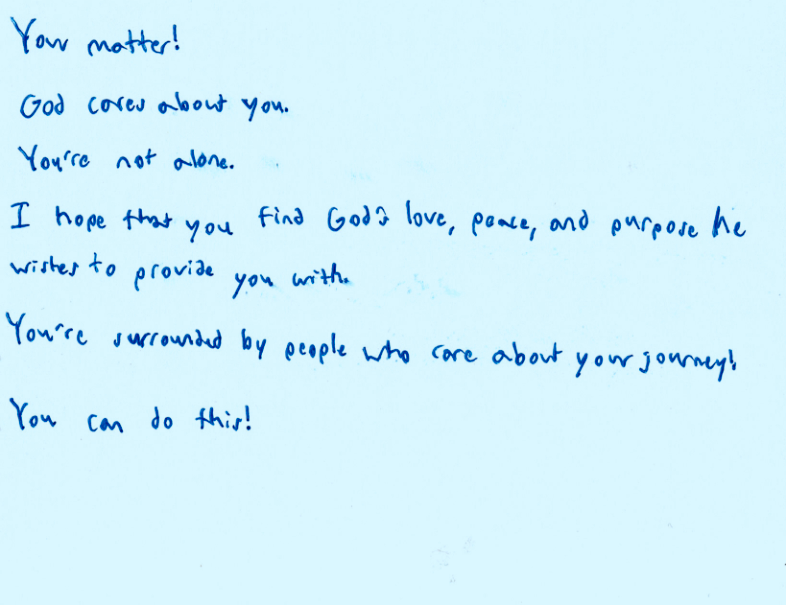 Your matter!
God cares about you.
You're not alone.
I hope that you find God's love, peace, and purpose he
wishes to provide you with.
You're surrounded by people who care about your journey!
You can do this!